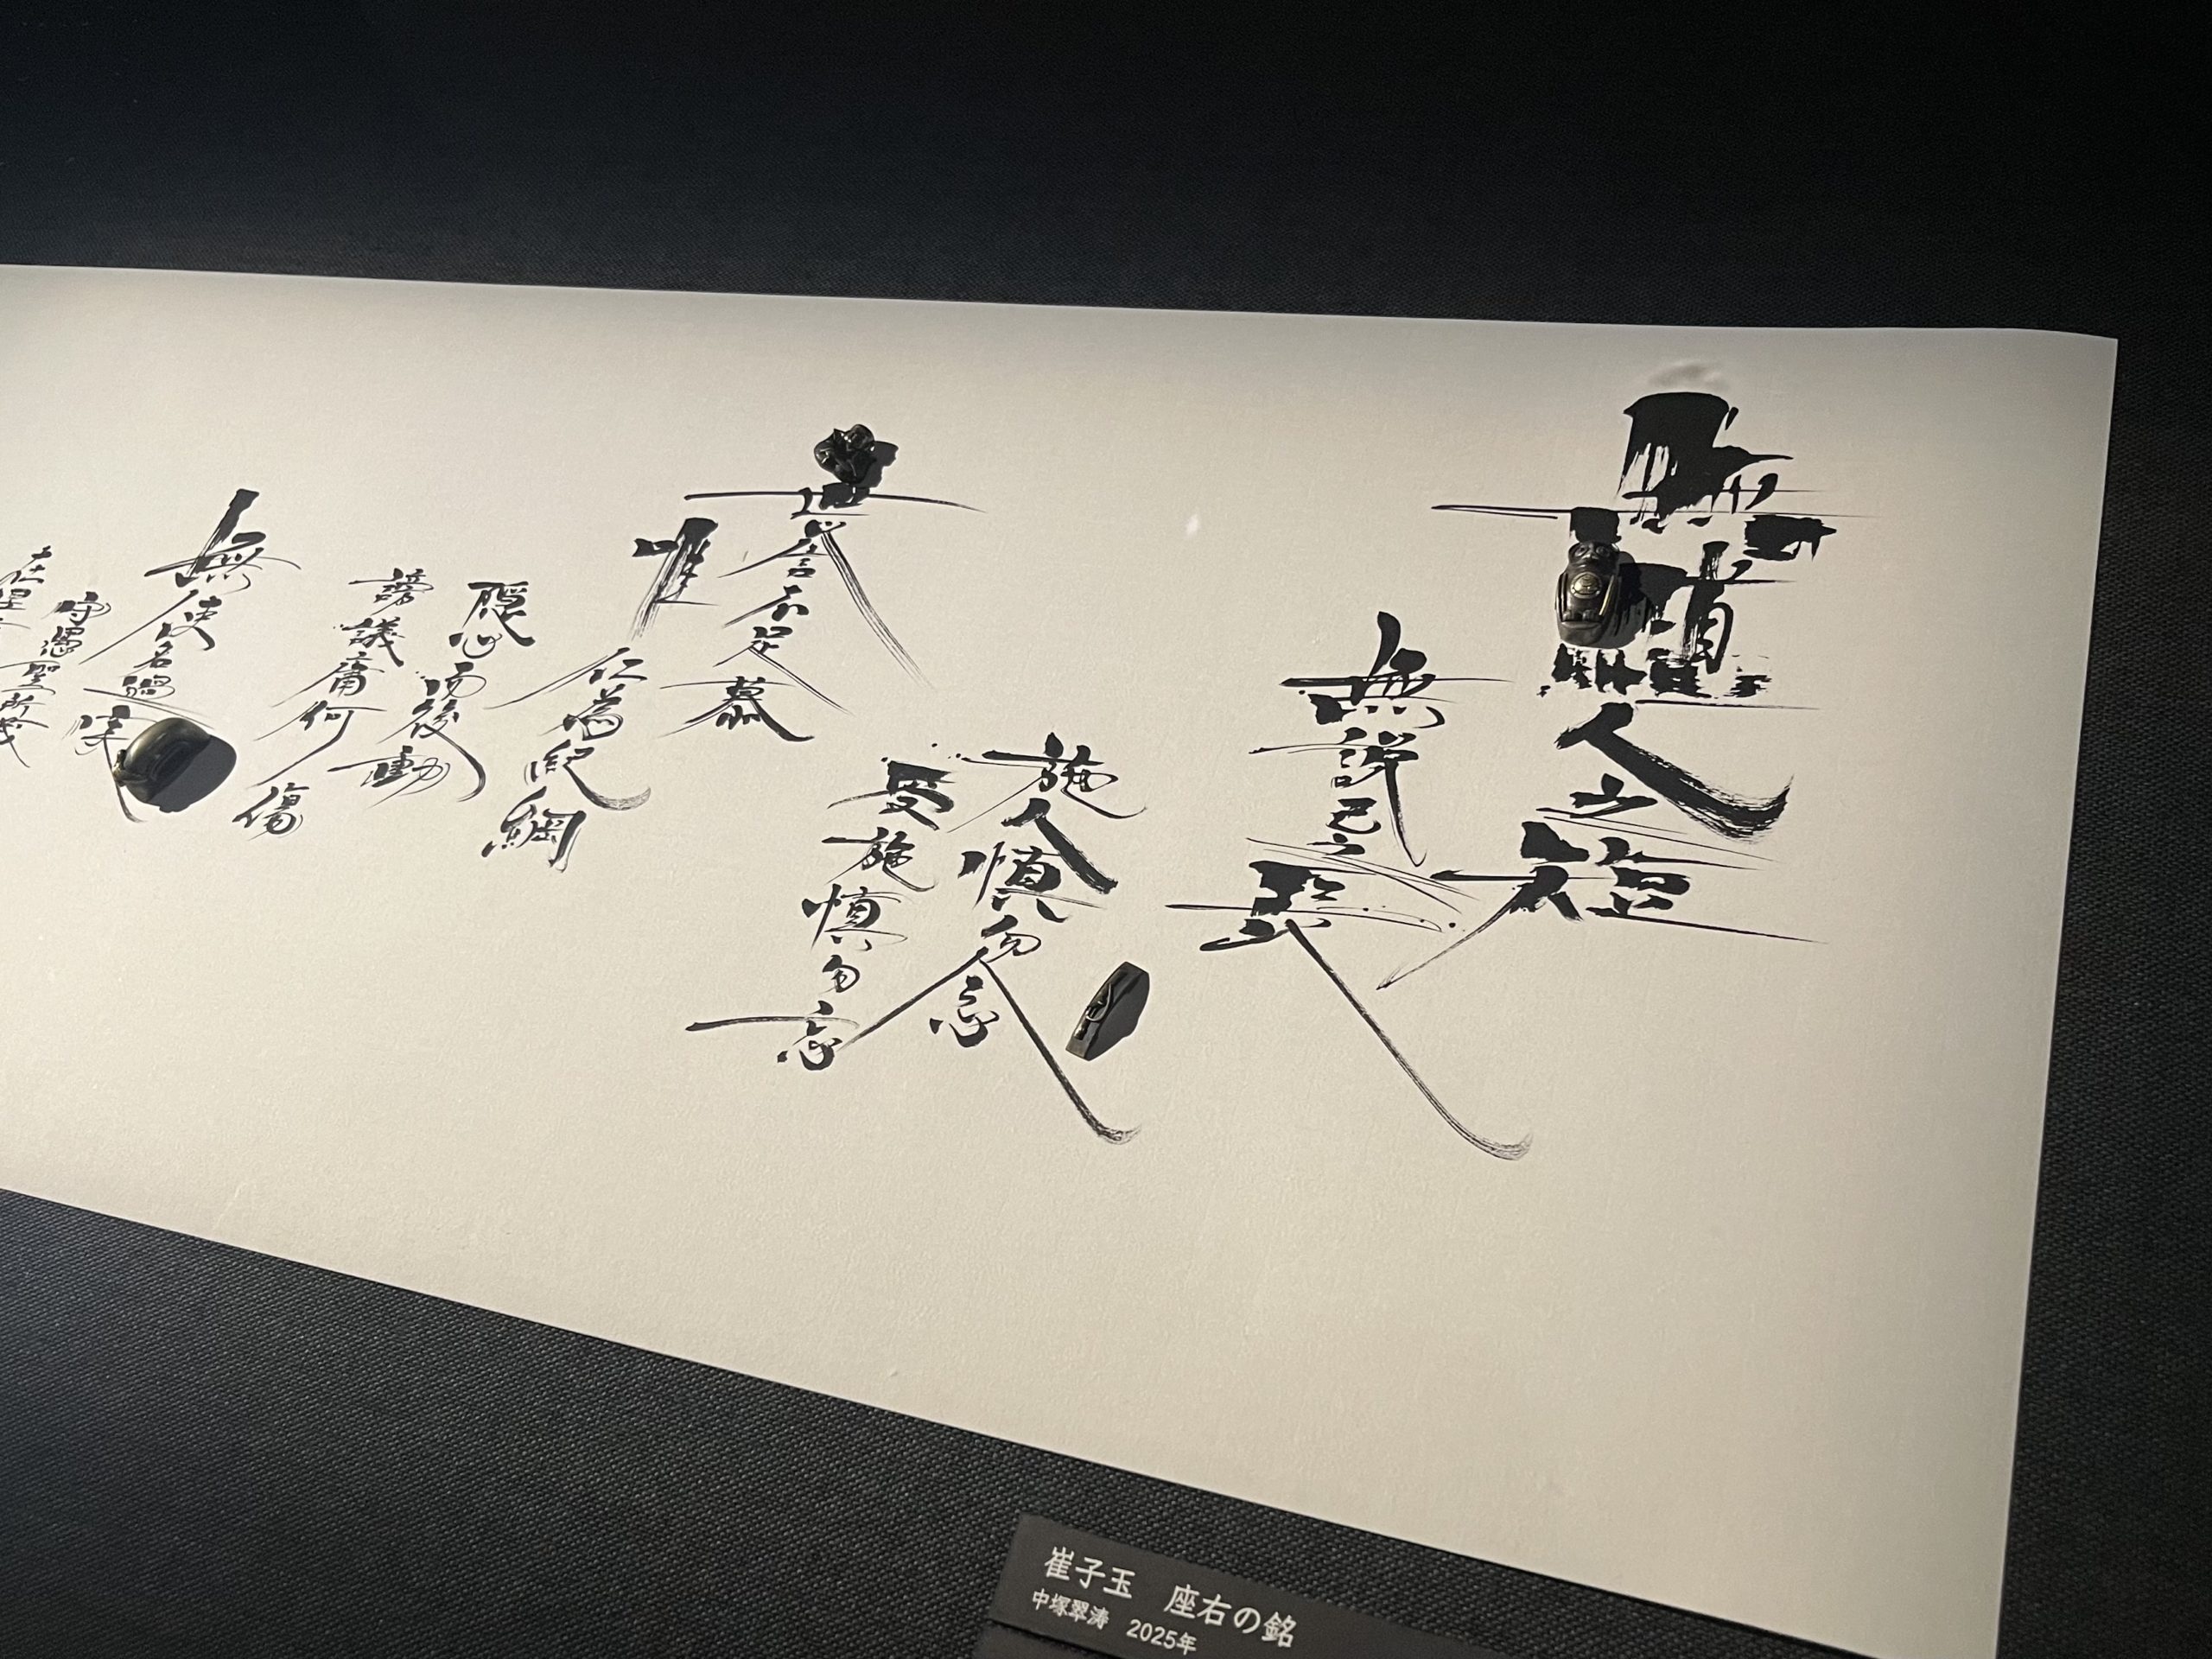 無道人之短
無説己之長
施人慎勿念
受施慎勿忘
世誉不足慕
唯仁為紀綱
隠心而後動
謗議庸何傷
無使名過実
守愚聖所臧
在涅
崔子玉　座右の銘
中塚翠涛　2025年